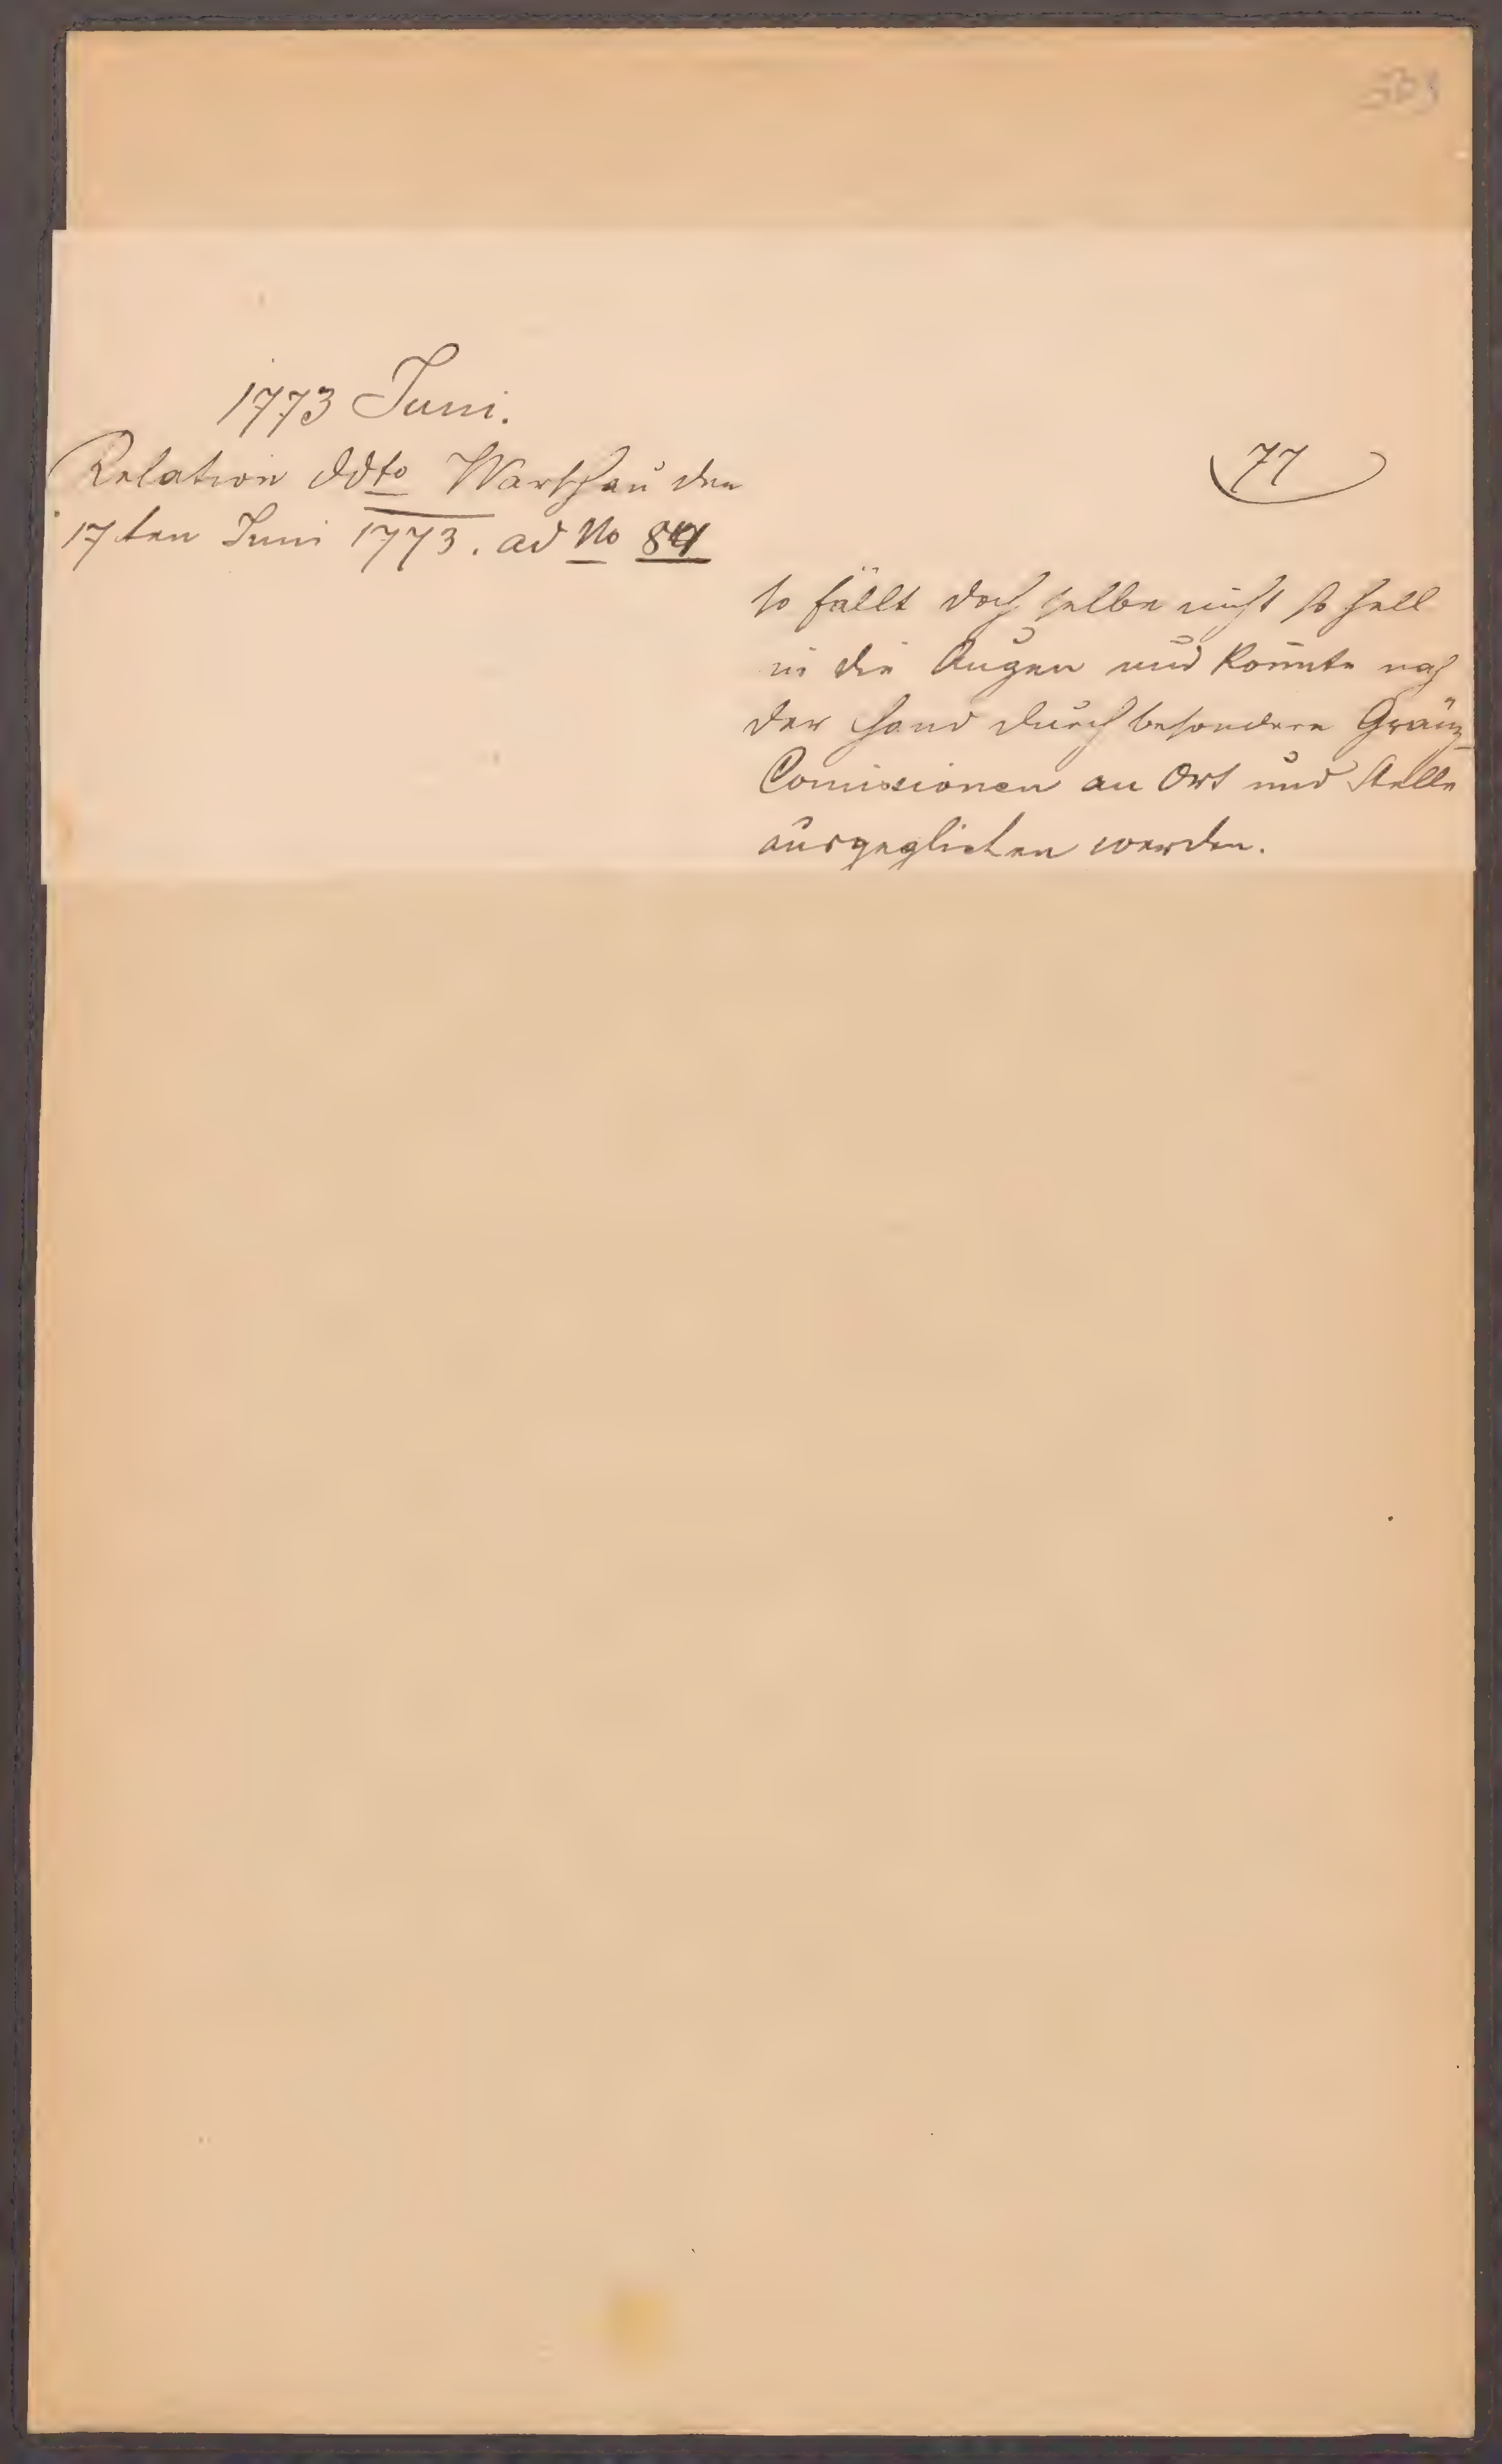 1773 Juni.
Relation ddto Warschau den
17ten Juni 1773. ad No
77
so fällt doch selbe nicht so hell
in die Augen und konnte nach
der Hand durch besondere Gränz-
Comissionen an Ort und Stelle
ausgeglichen werden.